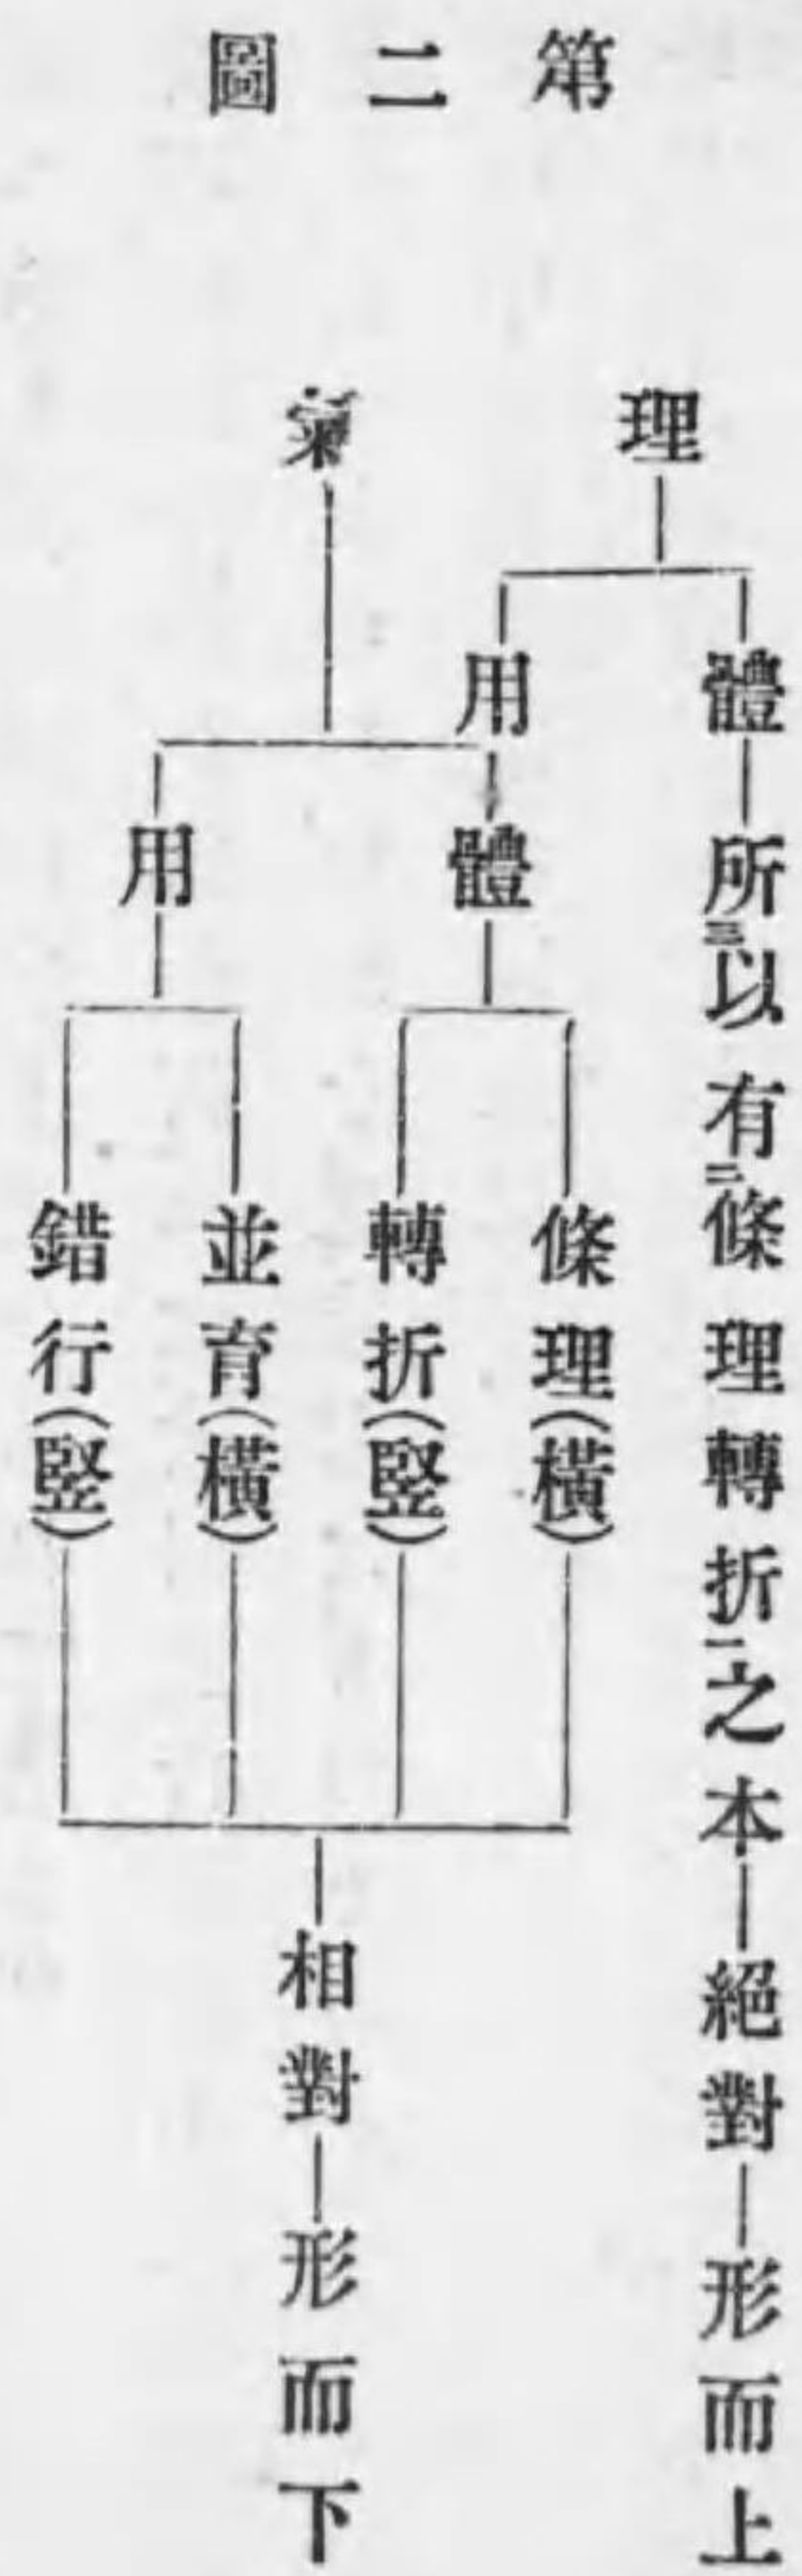 第二圖
理
體
所以有條理轉折之本
絕對
形而上
用
氣
體
條理(橫)
轉折(竪)
用
並育(橫)
錯行(竪)
相對
形而下